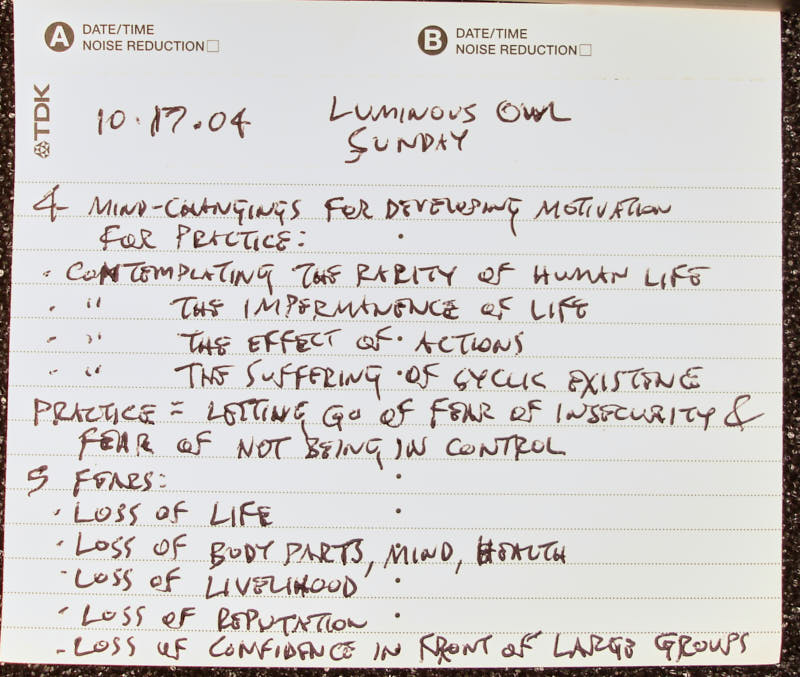 A DATE/TIME NOISE REDUCTION □
B DATE/TIME NOISE REDUCTION □
TDK
10.17.04 LUMINOUS OWL
SUNDAY
4 MIND-CHANGINGS FOR DEVELOPING MOTIVATION
FOR PRACTICE:
· CONTEMPLATING THE RARITY OF HUMAN LIFE
· " THE IMPERMANENCE OF LIFE
· " THE EFFECT OF ACTIONS
· " THE SUFFERING OF CYCLIC EXISTENCE
PRACTICE = LETTING GO OF FEAR OF INSECURITY &
FEAR OF NOT BEING IN CONTROL
5 FEARS:
· LOSS OF LIFE
· LOSS OF BODY PARTS, MIND, HEALTH
· LOSS OF LIVELIHOOD
· LOSS OF REPUTATION
- LOSS OF CONFIDENCE IN FRONT OF LARGE GROUPS